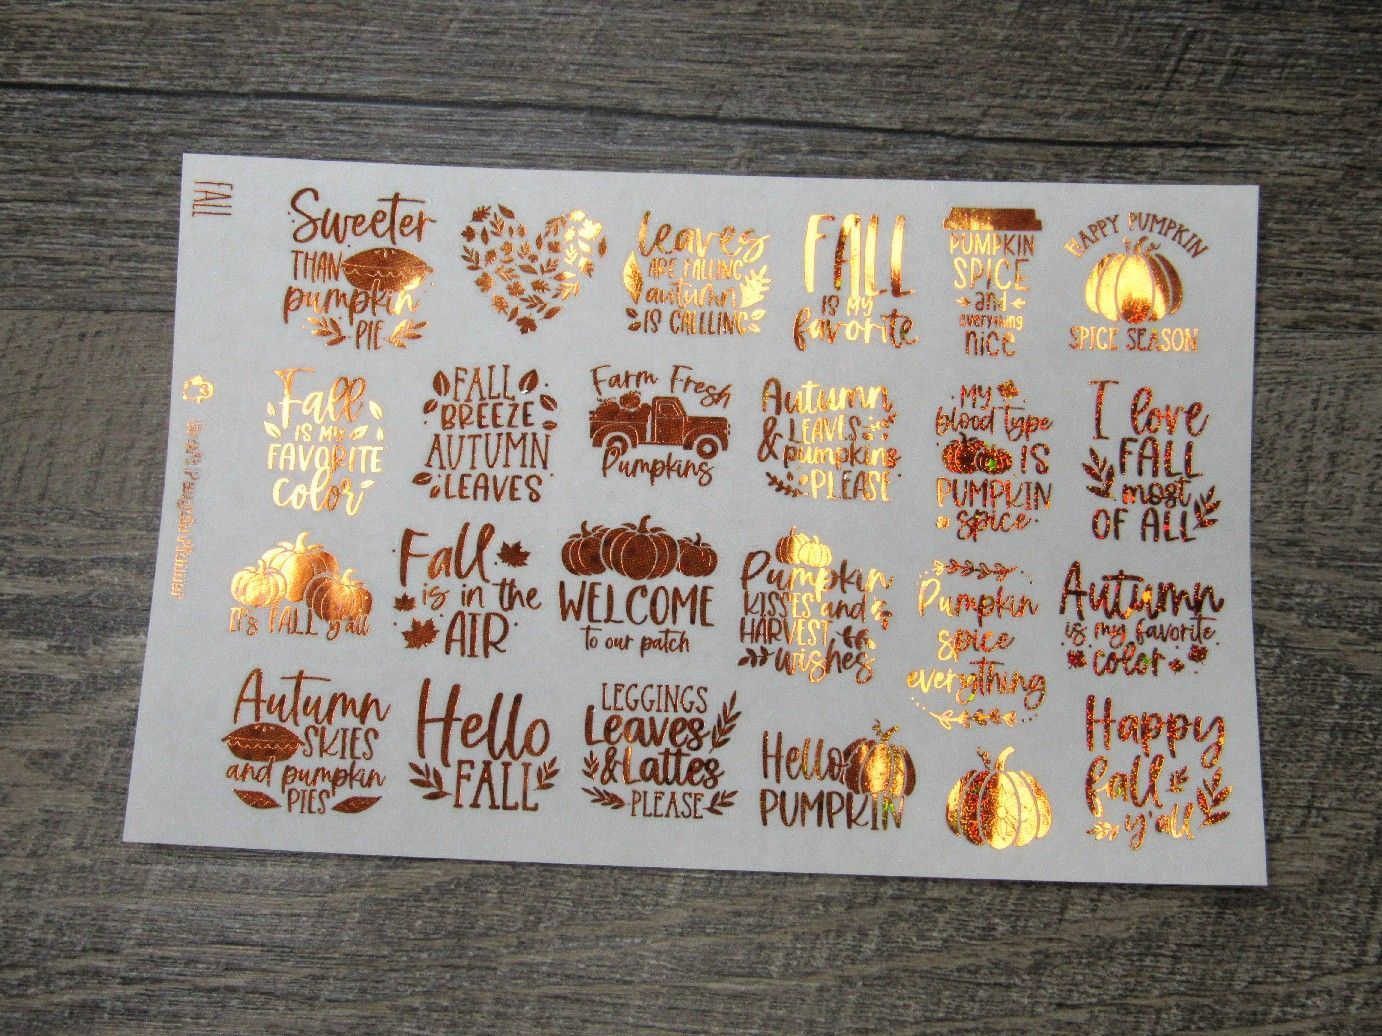 FALL
Sweeter
THAN
pumpkin
PIE
leaves
ARE FALLING
autumn
IS CALLLING
FALL
IS MY
favorite
PUMPKIN
SPICE
and
everything
nice
HAPPY PUMPKIN
SPICE SEASON
Fall
IS MY
FAVORITE
color
FALL
BREEZE
AUTUMN
LEAVES
Farm Fresh
Pumpkins
Autumn
LEAVES
& pumpkins
PLEASE
MY
blood type
IS
PUMPKIN
spice
I love
FALL
most
OF ALL
It's FALL y'all
Fall
is in the
AIR
WELCOME
to our patch
Pumpkin
KISSES and
HARVEST
wishes
Pumpkin
spice
everything
Autumn
is my favorite
color
Autumn
SKIES
and pumpkin
PIES
Hello
FALL
LEGGINGS
Leaves
& Lattes
PLEASE
Hello
PUMPKIN
Happy
fall
y'all